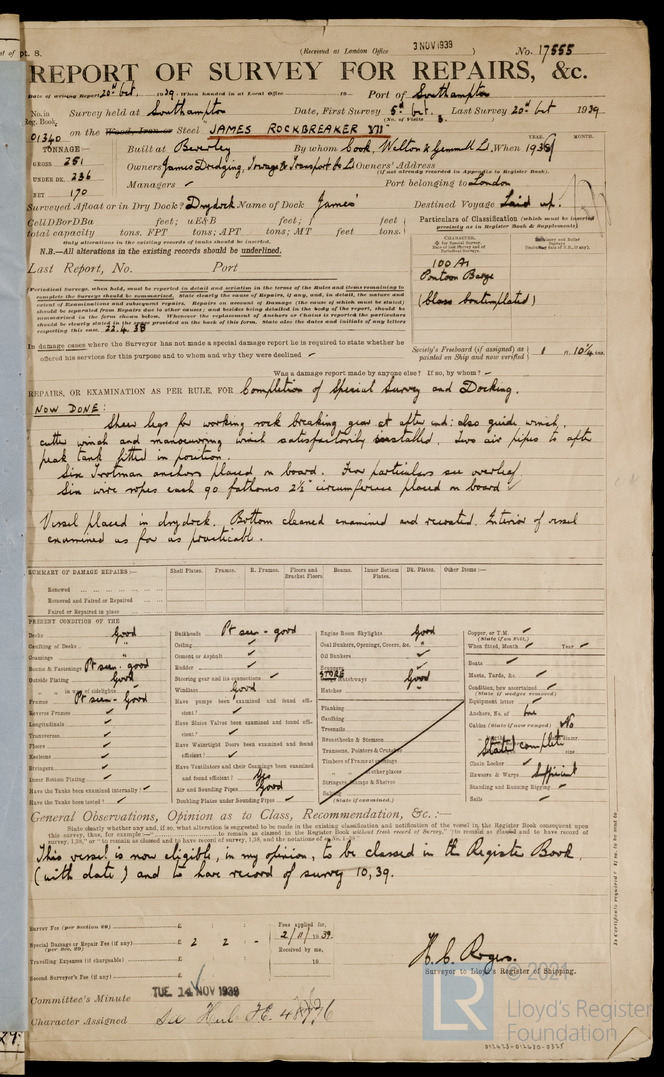 pt. 8.
(Received at London Office 3 NOV 1939
No. 17555
REPORT OF SURVEY FOR REPAIRS, &c.
Date of writing Report 20th Oct. 1939. When handed in at Local Office 19 Port of Southampton
No. in Reg. Book. Survey held at Southampton Date, First Survey 5th Oct. Last Survey 20th Oct 1939
(No. of Visits 3.
01340 on the Wood, Iron or Steel JAMES ROCKBREAKER
TONNAGE— Built at Beverley By whom Cook, Welton & Gemmell Ld, When 1938
YEAR. MONTH.
GROSS 251 Owners James Dredging, Towage & Transport Co Ld Owners' Address
(if not already recorded in Appendix to Register Book).
UNDER DK. 236
NET 170 Managers Port belonging to London
Surveyed Afloat or in Dry Dock? Drydock Name of Dock James' Destined Voyage Laid up.
CellDBorDBa feet; uE&B feet; feet;
total capacity tons. FPT tons; APT tons; MT feet tons.
Only alterations in the existing records of tanks should be inserted.
N.B.—All alterations in the existing records should be underlined.
Last Report, No. Port
Particulars of Classification (which must be inserted precisely as in Register Book & Supplements)
CHARACTER.
100 A1
Pontoon Barge
(Class Contemplated)
(Periodical Surveys, when held, must be reported in detail and seriatim in the terms of the Rules and items remaining to
complete the Surveys should be summarised. State clearly the cause of Repairs, if any, and, in detail, the nature and
extent of Examinations and subsequent repairs. Repairs on account of Damage (the cause of which must be stated)
should be separated from Repairs due to other causes; and besides being detailed in the body of the report, should be
summarised in the form shown below. Whenever the replacement of Anchors or Chains is reported the particulars
should be clearly stated in the space provided on the back of this form. State also the dates and initials of any letters
respecting this case. 22.4.38
In damage cases where the Surveyor has not made a special damage report he is required to state whether he
offered his services for this purpose and to whom and why they were declined
Society's Freeboard (if assigned) as painted on Ship and now verified 1 ft. 10¼ ins.
Was a damage report made by anyone else? If so, by whom?
REPAIRS, OR EXAMINATION AS PER RULE, FOR Completion of Special Survey and Docking.
NOW DONE:
Sheer legs for working rock breaking gear at after end: also guide winch,
cutter winch and manoeuvring winch satisfactorily installed. Two air pipes to after
peak tank fitted in position.
Six Trotman anchors placed on board. For particulars see overleaf
Six wire ropes each 90 fathoms 2½" circumference placed on board
Vessel placed in drydock. Bottom cleaned examined and recoated. Interior of vessel
examined as far as practicable.
SUMMARY OF DAMAGE REPAIRS:— Shell Plates. Frames. R. Frames. Floors and Bracket Floors Beams. Inner Bottom Plates. Dk. Plates. Other Items:—
Renewed
Removed and Faired or Repaired
Faired or Repaired in place
PRESENT CONDITION OF THE
Decks Good
Caulking of Decks "
Coamings "
Beams & Fastenings Pt seen - good
Outside Plating Good
" " in way of sidelights
Frames Pt seen - Good
Reverse Frames
Longitudinals
Transverses
Floors
Keelsons
Stringers
Inner Bottom Plating
Have the Tanks been examined internally?
Have the Tanks been tested?
Bulkheads Pt seen - good
Ceiling
Cement or Asphalt
Rudder
Steering gear and its connections
Windlass Good
Have pumps been examined and found efficient?
Have Sluice Valves been examined and found efficient?
Have Watertight Doors been examined and found efficient?
Have Ventilators and their Coamings been examined and found efficient? Yes
Air and Sounding Pipes Good
Doubling Plates under Sounding Pipes
Engine Room Skylights Good
Coal Bunkers, Openings, Covers, &c. "
Oil Bunkers
Scuppers
STORE Hatchways Good
Hatches
Planking
Caulking
Treenails
Breasthooks & Stemson
Transoms, Pointers & Crutches
Timbers of Frame at openings
" " at other places
Stringers, Clamps & Shelves
(State if examined.)
Copper, or Y.M.
(State if on Felt.)
When fitted, Month Year
Boats
Masts, Yards, &c.
Condition, how ascertained
(State if wedges removed)
Equipment letter
Anchors, No. of One
Cables (State if now ranged) No
Stated complete
Chain Locker
Hawsers & Warps Sufficient
Standing and Running Rigging
Sails
General Observations, Opinion as to Class, Recommendation, &c.:—
State clearly whether any, and if so, what alteration is suggested to be made in the existing classification and notification of the vessel in the Register Book consequent upon
This vessel is now eligible, in my opinion, to be classed in the Register Book.
(with date) and to have record of survey 10,39.
Survey Fee (per Section 29) £
Special Damage or Repair Fee (if any) £ 2 2 -
(per Sec. 29)
Travelling Expenses (if chargeable) £
Second Surveyor's Fee (if any) £
Fees applied for, 2/11/1939.
Received by me,
19
H. C. Rogers.
Surveyor to Lloyd's Register of Shipping.
Committee's Minute TUE. 14 NOV 1939
Character Assigned See Hull
LR
© 2021
Lloyd's Register
Foundation
012623-012630-0325